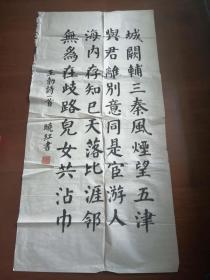 城闕輔三秦風煙望五津
與君離別意同是宦游人
海内存知已天落比涯邻
無爲在歧路兒女共沾巾
王勃詩一首
曉红書